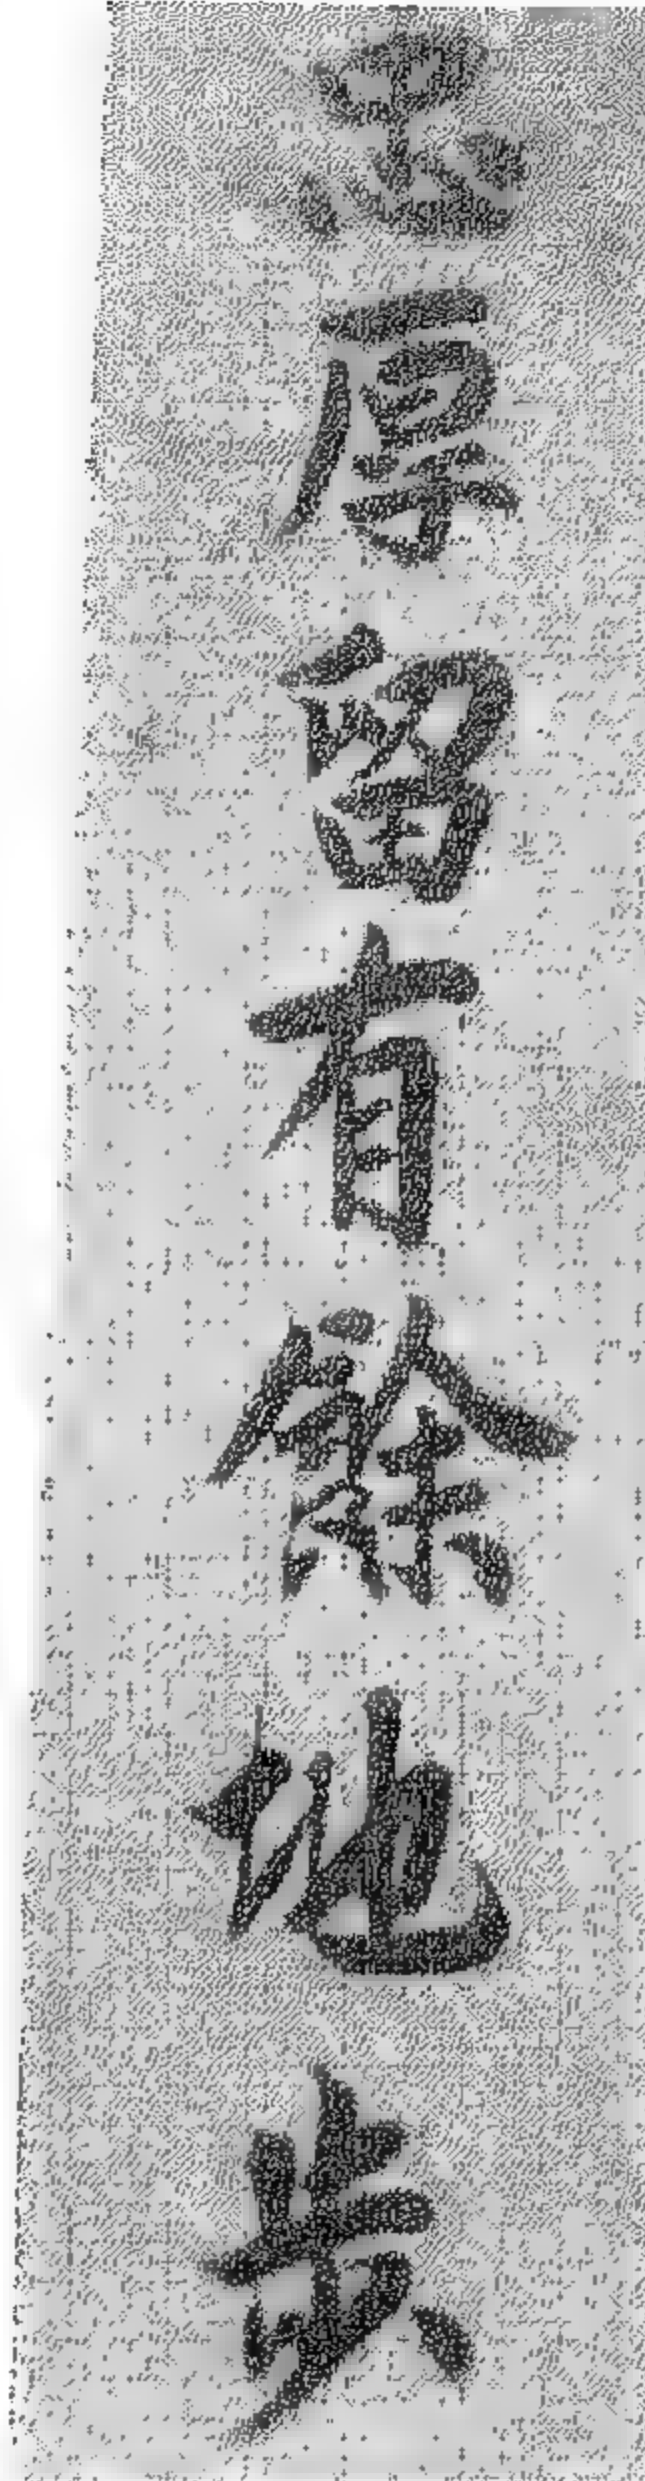 忠厚留有餘地步